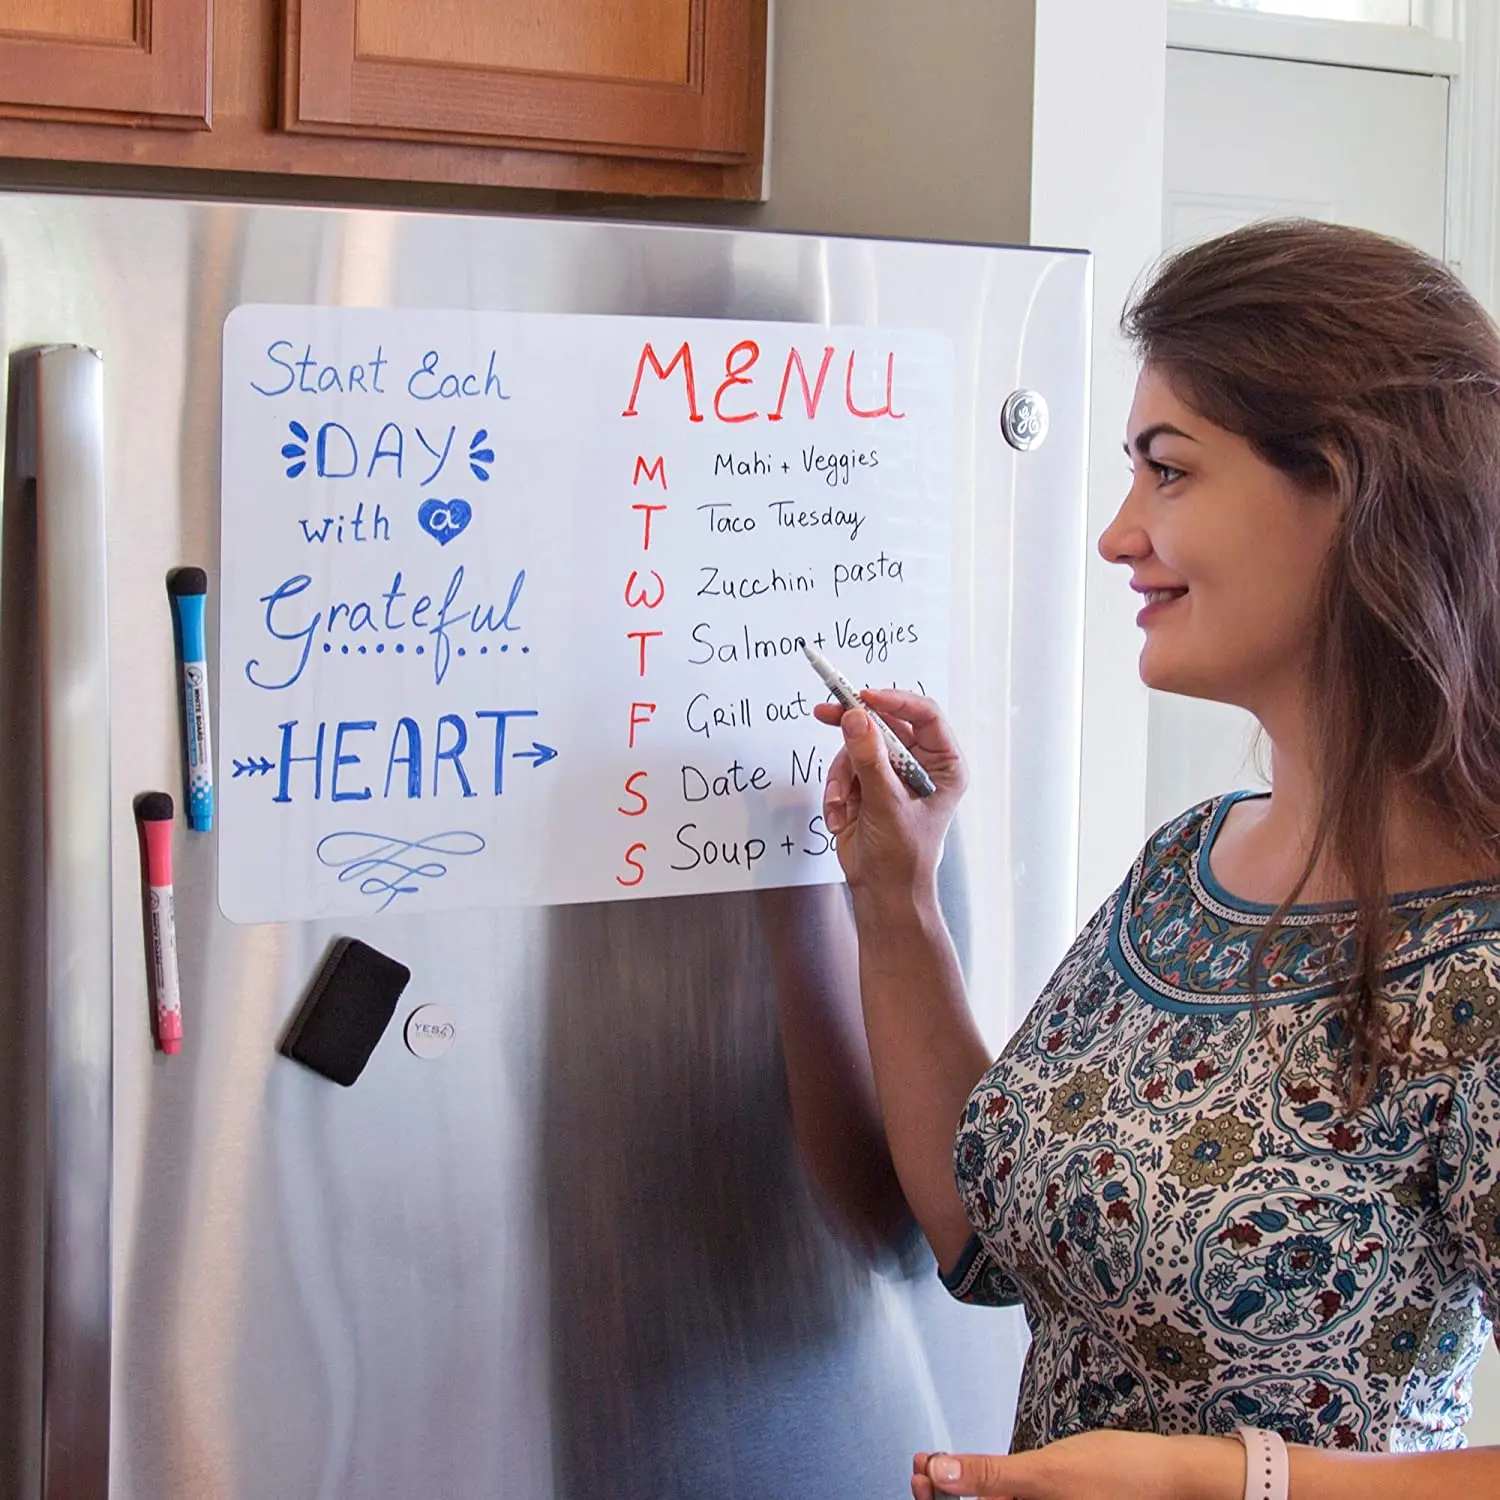 Start Each
DAY
with a
Grateful
HEART
MENU
M Mahi + Veggies
T Taco Tuesday
W Zucchini pasta
T Salmon + Veggies
F Grill out
S Date
S Soup +
GE
WHITE BOARD
WHITE BOARD
YES4